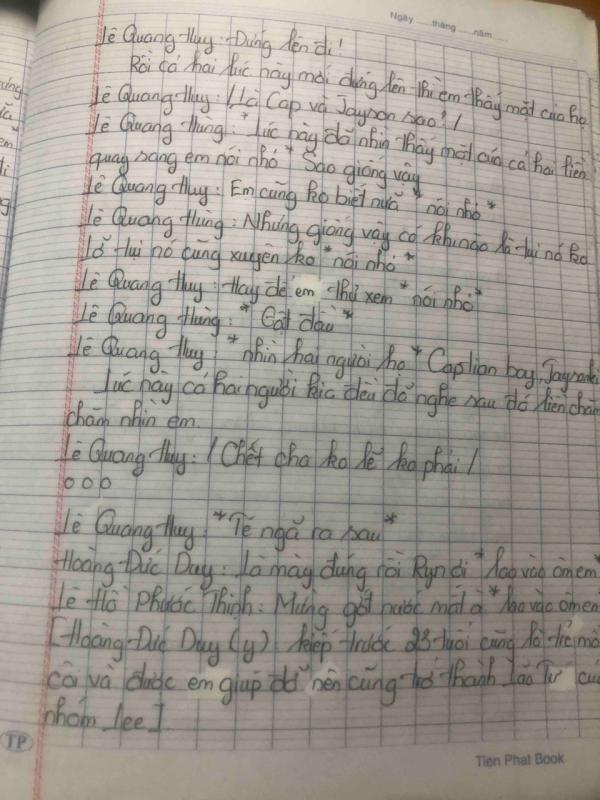 Ngày ...... tháng ...... năm ......
Lê Quang Huy: Đứng lên đi!
Rồi cả hai lúc này mới đứng lên thì em thấy mặt của họ
Lê Quang Huy: / Là Cap và Jayson sao! /
Lê Quang Hùng: * Lúc này đã nhìn thấy mặt của cả hai liền
quay sang em nói nhỏ * Sao giống vậy
Lê Quang Huy: Em cũng ko biết nữa * nói nhỏ *
Lê Quang Hùng: Nhưng giống vậy có khi nào là tụi nó ko
lẽ tụi nó cũng xuyên ko * nói nhỏ *
Lê Quang Huy: Hay để em thử xem * nói nhỏ *
Lê Quang Hùng: * Gật đầu *
Lê Quang Huy: * nhìn hai người họ * Captian boy, Jaysonlei
Lúc này cả hai người kia đều đã nghe sau đó liền chằm
chằm nhìn em.
Lê Quang Huy: / Chết cha ko lẽ ko phải /
o o o
Lê Quang Huy: * Té ngã ra sau *
Hoàng Đức Duy: Là mày đúng rồi Ryn ơi * lao vào ôm em *
Lê Hồ Phước Thịnh: Mừng gớt nước mắt à * lao vào ôm em
[Hoàng Đức Duy (y): kiếp trước 23 tuổi cũng là trẻ mồ
côi và được em giúp đỡ nên cũng trở thành Lão Tư của
nhóm Lee]
TP
Tien Phat Book